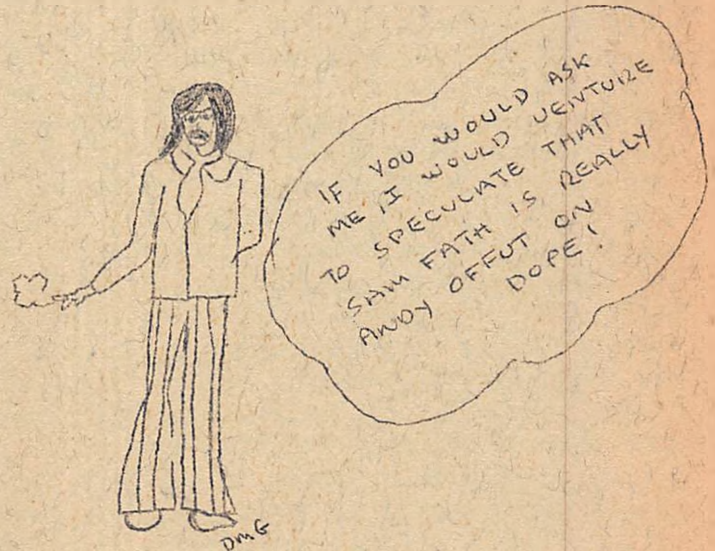 IF YOU WOULD ASK
ME, I WOULD VENTURE
TO SPECULATE THAT
SAM FATH IS REALLY
ANDY OFFUT ON
DOPE!
DMG